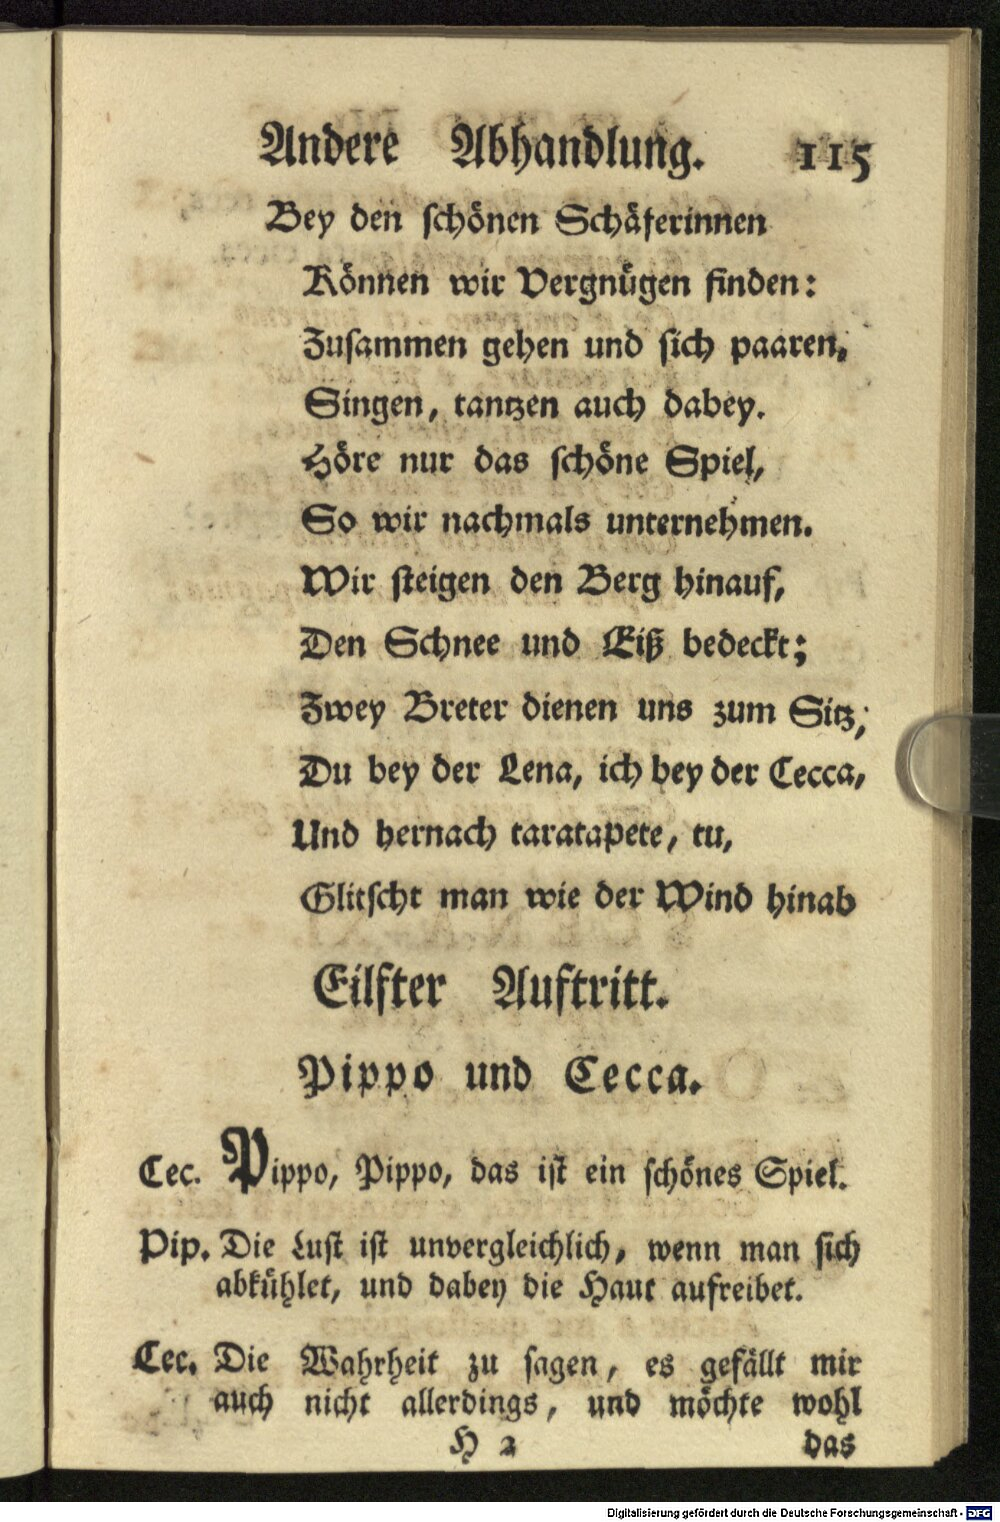 Andere Abhandlung. 115
Bey den schönen Schäferinnen
Können wir Vergnügen finden:
Zusammen gehen und sich paaren,
Singen, tantzen auch dabey.
Höre nur das schöne Spiel,
So wir nachmals unternehmen.
Wir steigen den Berg hinauf,
Den Schnee und Eiß bedeckt;
Zwey Breter dienen uns zum Sitz,
Du bey der Lena, ich bey der Cecca,
Und hernach taratapete, tu,
Glitscht man wie der Wind hinab
Eilfter Auftritt.
Pippo und Cecca.
Cec. Pippo, Pippo, das ist ein schönes Spiel.
Pip. Die Lust ist unvergleichlich, wenn man sich
abkühlet, und dabey die Haut aufreibet.
Cec. Die Wahrheit zu sagen, es gefällt mir
auch nicht allerdings, und möchte wohl
H 2 das
Digitalisierung gefördert durch die Deutsche Forschungsgemeinschaft - DFG